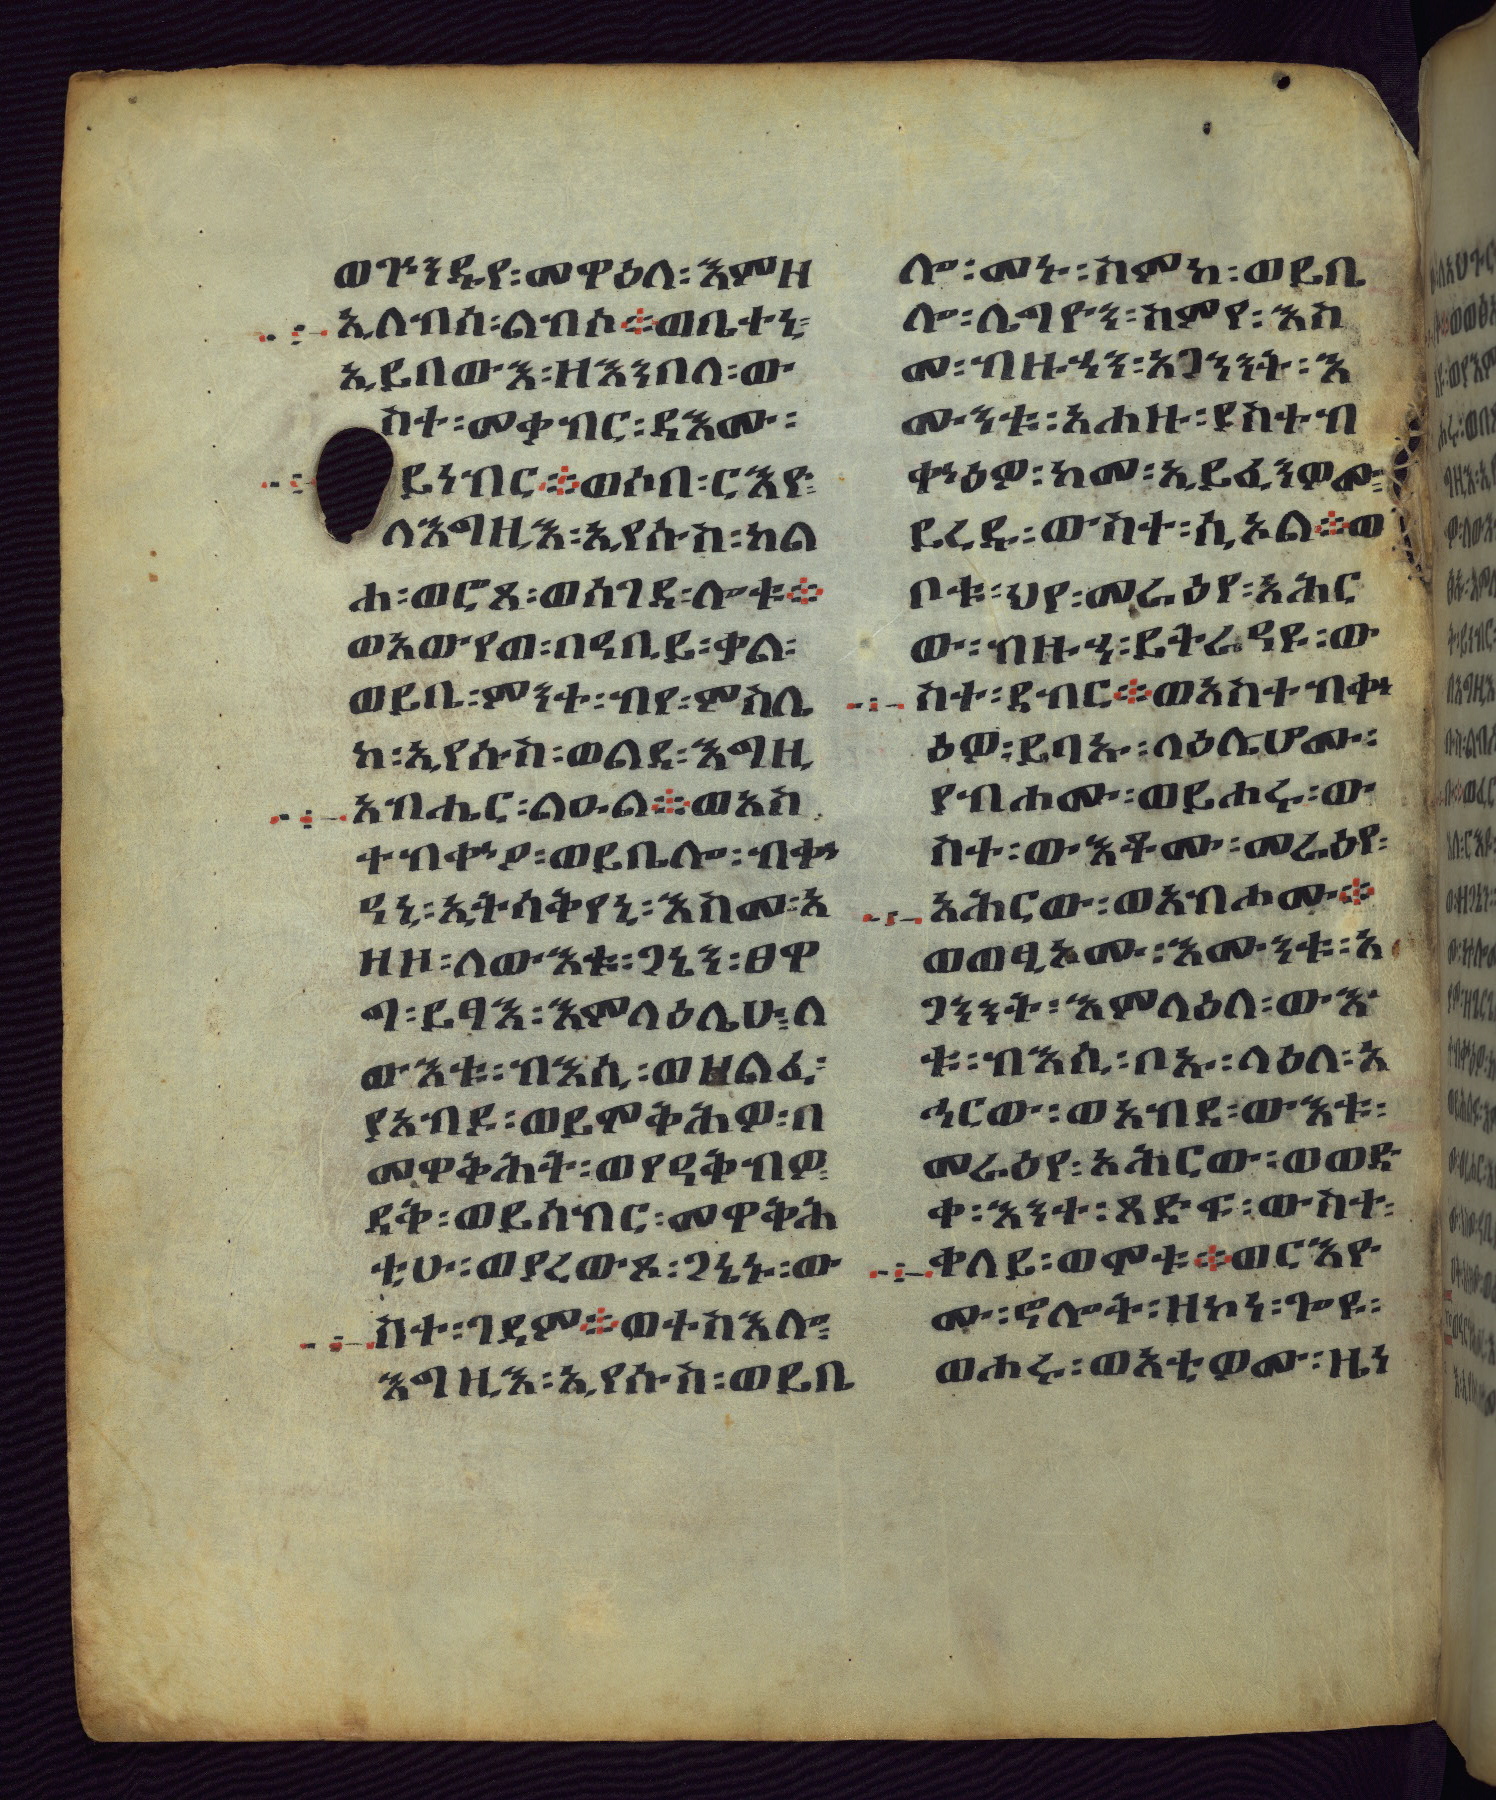 ወጕንዱየ፡መዋዕለ፡እምዘ
ኢለብሰ፡ልብሰ፨ወቤተኒ፡
ኢይበውእ፡ዘእንበለ፡ው
ስተ፡መቃብር፡ዳእሙ፡
ይነብር፨ወሶበ፡ርእዮ፡
ላእግዚእ፡ኢየሱስ፡ከል
ሐ፡ወሮጸ፡ወሰገደ፡ሎቱ፨
ወአውየወ፡በዓቢይ፡ቃል፡
ወይቤ፡ምንተ፡ብየ፡ምስሌ
ከ፡ኢየሱስ፡ወልደ፡እግዚ
አብሔር፡ልዑል፨ወአስ
ተብቍዖ፡ወይቤሎ፡ብቍ
ዓኒ፡ኢትሳቅየኒ፡እስመ፡አ
ዘዞ፡ለውእቱ፡ጋኔን፡ፀዋ
ግ፡ይፃእ፡እምላዕሌሁ፡ለ
ውእቱ፡ብእሲ፡ወዘልፈ፡
ያአብድ፡ወይምቅሕዎ፡በ
መዋቅሕት፡ወየዓቅብዎ፡
ደቅ፡ወይሰብር፡መዋቅሕ
ቲሁ፡ወያረውጾ፡ጋኔኑ፡ው
ስተ፡ገዳም፨ወተስእሎ፡
እግዚእ፡ኢየሱስ፡ወይቤ
ሎ፡መኑ፡ስምከ፡ወይቤ
ሎ፡ሌግዮን፡ስምየ፡እስ
መ፡ብዙኃን፡አጋንንት፡እ
ሙንቱ፡አሐዙ፡ያስተብ
ቍዕዎ፡ከመ፡ኢይፈንዎሙ፡
ይረዱ፡ውስተ፡ሲኦል፨ወ
ቦቱ፡ህየ፡መራዕየ፡አሕር
ው፡ብዙኃ፡ይትራዓዩ፡ው
ስተ፡ደብር፨ወአስተብቍ
ዕዎ፡ይባኡ፡ላዕሌሆሙ፡
ያብሐሙ፡ወይሐሩ፡ው
ስተ፡ውእቶሙ፡መራዕየ፡
አሕርው፡ወአብሐሙ፨
ወወፂኦሙ፡እሙንቱ፡አ
ጋንንት፡እምላዕለ፡ውእ
ቱ፡ብእሲ፡ቦኡ፡ላዕለ፡አ
ሕርው፡ወአብደ፡ውእቱ፡
መራዕየ፡አሕርው፡ወወድ
ቀ፡እንተ፡ጸድፍ፡ውስተ፡
ቀላይ፡ወሞቱ፨ወርእዮ
ሙ፡ኖሎት፡ዘከነ፡ጐዩ፡
ወሐሩ፡ወአቲዎሙ፡ዜነ